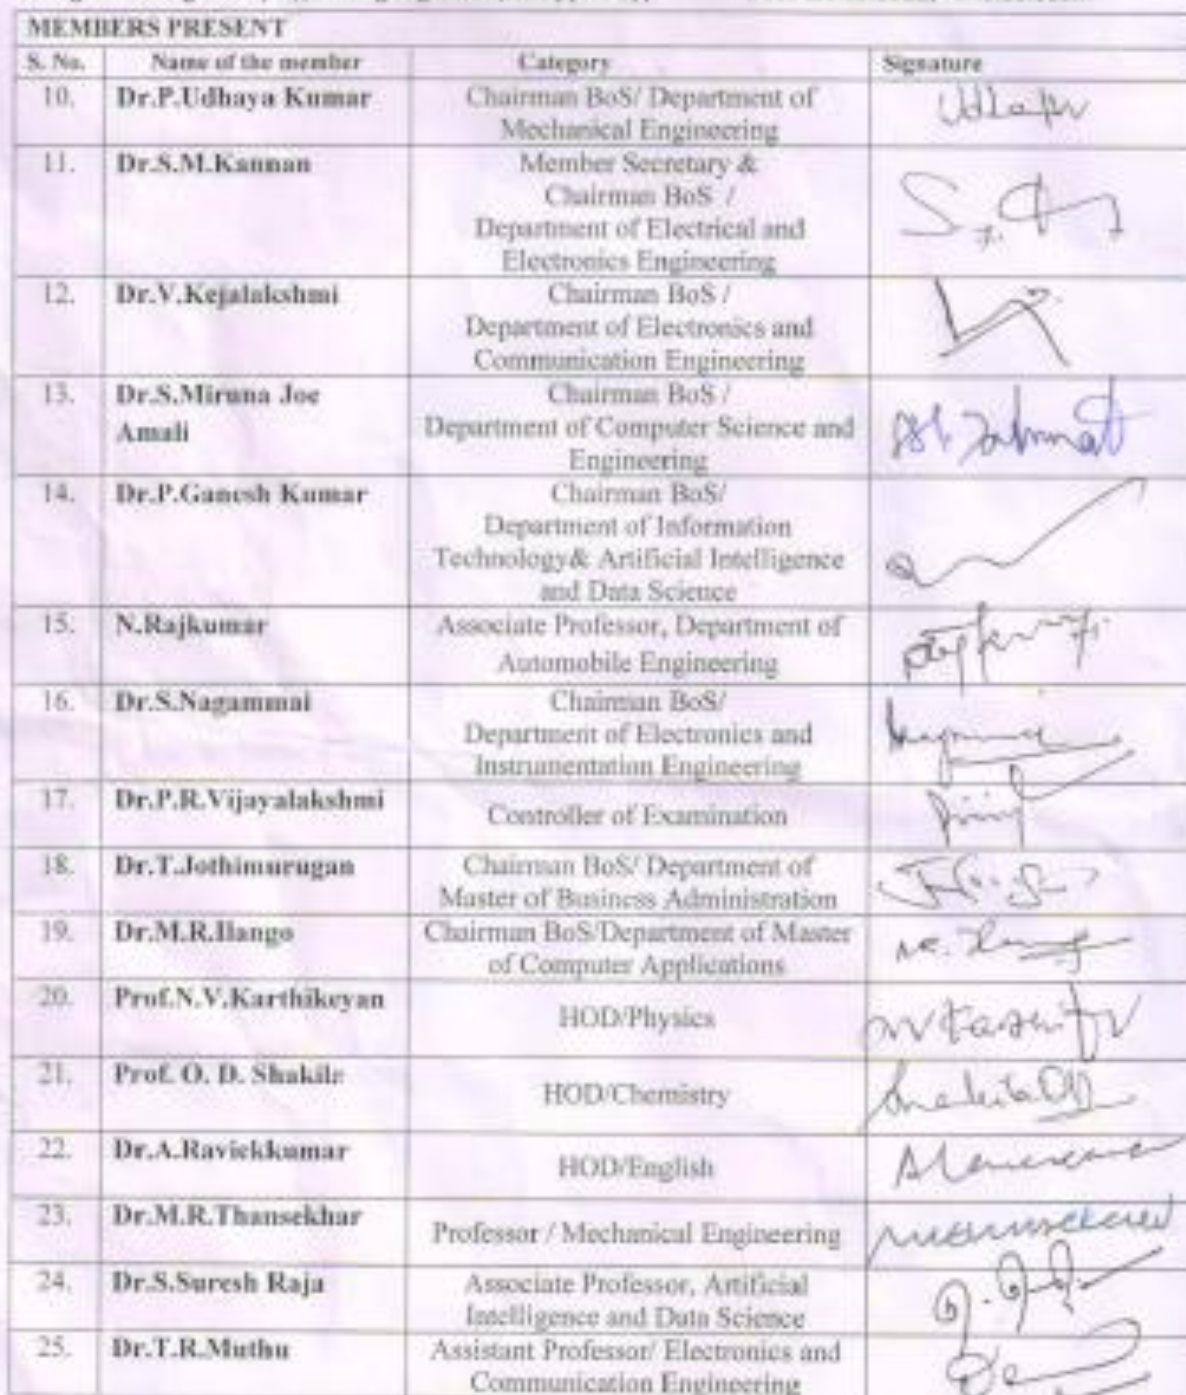 MEMBERS PRESENT
S. No. Name of the member Category Signature
10. Dr.P.Udhaya Kumar Chairman BoS/ Department of
Mechanical Engineering
11. Dr.S.M.Kannan Member Secretary &
Chairman BoS /
Department of Electrical and
Electronics Engineering
12. Dr.V.Kejalakshmi Chairman BoS /
Department of Electronics and
Communication Engineering
13. Dr.S.Miruna Joe Chairman BoS /
Amali Department of Computer Science and
Engineering
14. Dr.P.Ganesh Kumar Chairman BoS/
Department of Information
Technology& Artificial Intelligence
and Data Science
15. N.Rajkumar Associate Professor, Department of
Automobile Engineering
16. Dr.S.Nagammai Chairman BoS/
Department of Electronics and
Instrumentation Engineering
17. Dr.P.R.Vijayalakshmi Controller of Examination
18. Dr.T.Jothimurugan Chairman BoS/ Department of
Master of Business Administration
19. Dr.M.R.Ilango Chairman BoS/Department of Master
of Computer Applications
20. Prof.N.V.Karthikeyan HOD/Physics
21. Prof. O. D. Shakila HOD/Chemistry
22. Dr.A.Ravickkumar HOD/English
23. Dr.M.R.Thansekhar Professor / Mechanical Engineering
24. Dr.S.Suresh Raja Associate Professor, Artificial
Intelligence and Data Science
25. Dr.T.R.Muthu Assistant Professor/ Electronics and
Communication Engineering